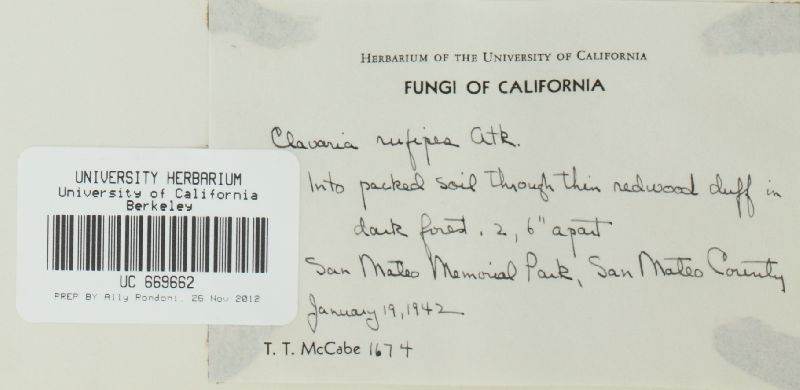 HERBARIUM OF THE UNIVERSITY OF CALIFORNIA
FUNGI OF CALIFORNIA
Clavaria rufipes Atk.
Into packed soil through thin redwood duff in
dark forest. 2, 6" apart
San Mateo Memorial Park, San Mateo County
January 19, 1942
T. T. McCabe 1674
UNIVERSITY HERBARIUM
University of California
Berkeley
UC 669662
PREP BY Ally Rondoni, 26 Nov 2012